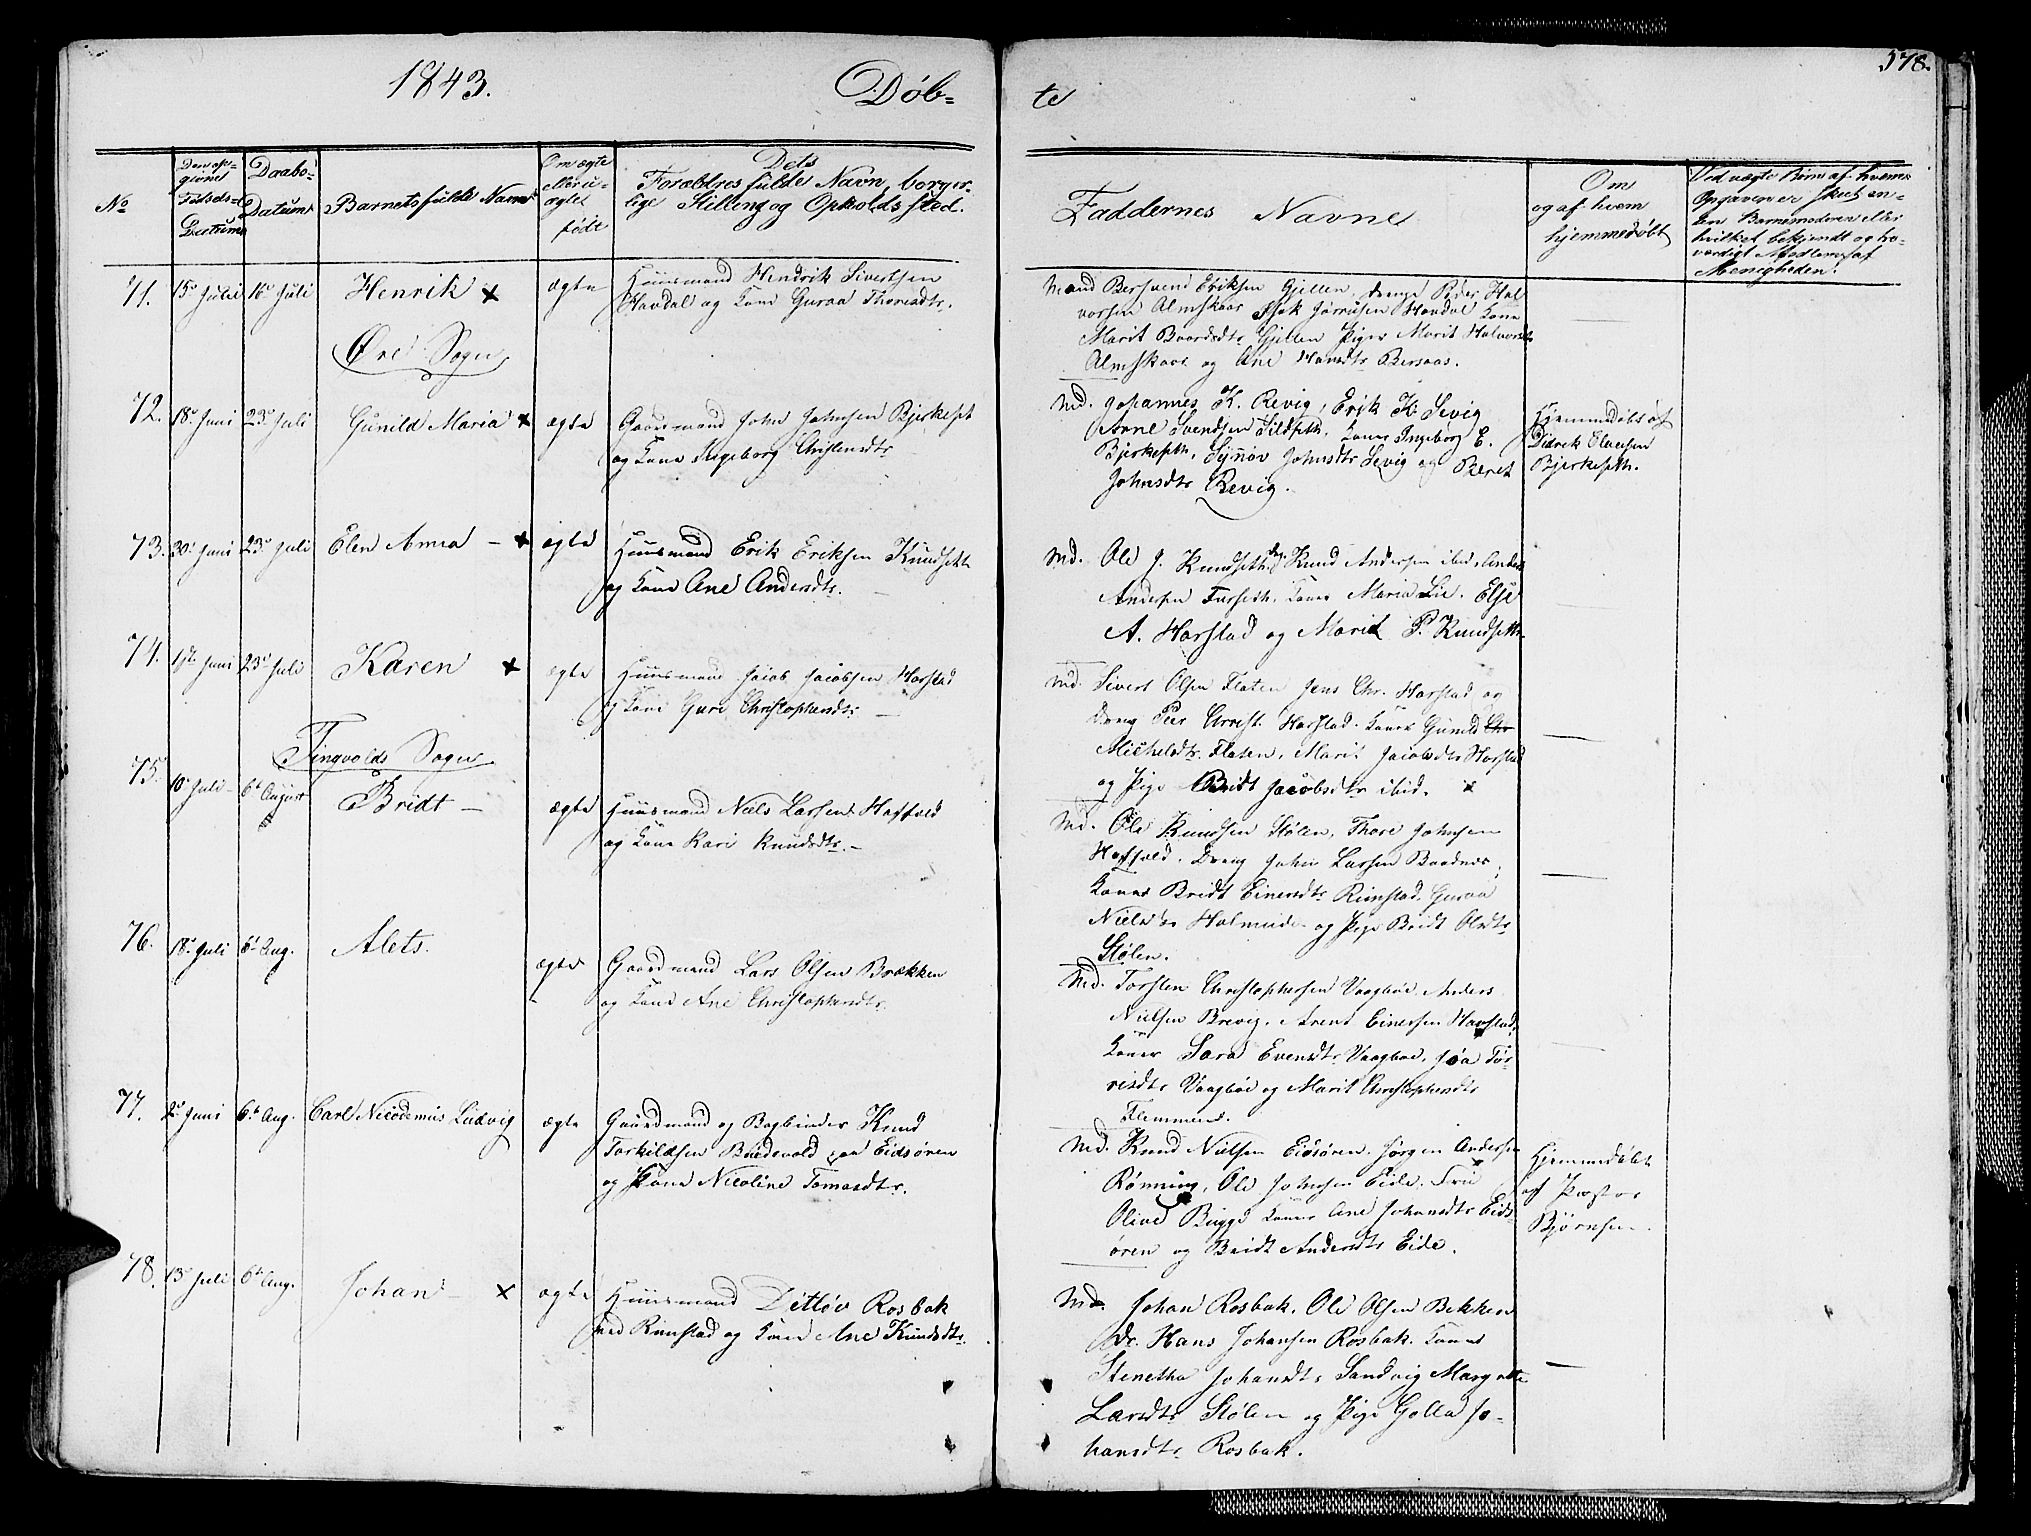 1843.
Døb=
te
578.
No
Den op-
givne
Fødsels-
Datum
Daabs-
Datum
Barnets fulde Navn
Om ægte
eller u-
ægte
født
Dets
Forældres fulde Navn, borger-
lige Stilling og Opholdssted.
Faddernes Navne
Om
og af hvem
hjemmedøbt
Ved uægte Børn af hvem
Opgaven er skeet en-
ten Barnemoderen eller
hvilket bekjendt og tro-
værdigt Medlem af
Menigheden.
71.
15de Juli
16de Juli
Henrik ×
ægte
Huusmand Hendrik Sivertsen
Havdal og Kone Guroa Thoresdtr.
Mænd Bersvend Eriksen Gjellen, Drenge Peder Hal
vorsen Almskaar Isak Jørrusen Havdal Kone
Marit Baardsdtr Gjellen Piger Marit Halvorsdtr
Almskaar og Ane Hansdtr Bersaas.
Øre Sogn
72.
18de Juni
23de Juli
Gunild Maria ×
ægte
Gaardmand John Johnsen Bjerkeset
og Kone Ingeborg Christensdtr
Md. Johannes K. Revig, Erik K. Sevig
Arne Svendsen Sildseth. Koner Ingeborg E.
Bjerkeseth, Synnøv Johnsdtr Sevig og Beret
Johnsdtr Revig.
Hjemmedøbt af
Didrik Elvesen
Bjerkeseth.
73.
30de Juni
23de Juli
Elen Anna — ×
ægte
Huusmand Erik Eriksen Knudseth
og Kone Ane Andersdtr. —
Md. Ole J. Knudseth. dr. Knud Andersen ibid. Anders
Andersen Furseth. Koner Maria Lie. Else
A. Harstad og Marit P. Knudseth.
74.
19de Juni
23de Juli
Karen ×
ægte
Huusmand Jacob Jacobsen Harstad
og Kone Guri Christophersdtr —
Md. Sivert Olsen Flaten Jens Chr. Harstad og
Dreng Peer Christ. Harstad. Koner Gunild Chr
Michelsdtr. Flaten, Marit Jacobsdtr Harstad
og Pige Bridt Jacobsdtr ibid. ×
Tingvolds Sogn
75.
10de Juli
6te August
Bridt —
ægte
Huusmand Niels Larsen Haffeld
og Kone Kari Knudsdtr. —
Md. Ole Knudsen Stølen, Thore Johnsen
Haffeld. Dreng John Larsen Boednes
Koner Bridt Einersdtr Rimstad, Guroa
Nielsdtr Holmeide og Pige Bridt Olsdtr
Stølen.
76.
18de Juli
6te Aug.
Alets.
ægte
Gaardmand Lars Olsen Brækken
og Kone Ane Christophersdtr.
Md. Torsten Christophersen Vaagbøe, Anders
Nielsen Brevig, Arent Einersen Harstad,
Koner Sara Evensdtr Vaagbøe, Joa Tor-
risdtr Vaagbøe og Marit Christophersdtr
Flemmen.
77.
2de Juni
6te Aug.
Carl Nicodemus Ludvig
ægte
Gaardmand og Bogbinder Knud
Torkildsen Bredevold paa Eidsøren
og Kone Nicoline Tomasdtr.
Md. Knud Nielsen Eidsøren. Jørgen Andersen
Rønning, Ole Johnsen Eide. Fru
Olive Bugge Koner Ane Johansdtr Eids-
øren og Bridt Andersdtr Eide.
Hjemmedøbt
af Pastor
Bjørnsen.
78.
13de Juli
6te Aug.
Johan — ×
ægte
Huusmand Ditløv Rosbak
ved Rimstad og Kone Ane Knudsdtr.
Md. Johan Rosbak. Ole Olsen Bekken
Dr. Hans Johansen Rosbak. Koner
Stenetha Johansdtr Sandvig Margrethe
Larsdtr Stølen og Pige Golla Jo-
hansdtr Rosbak.